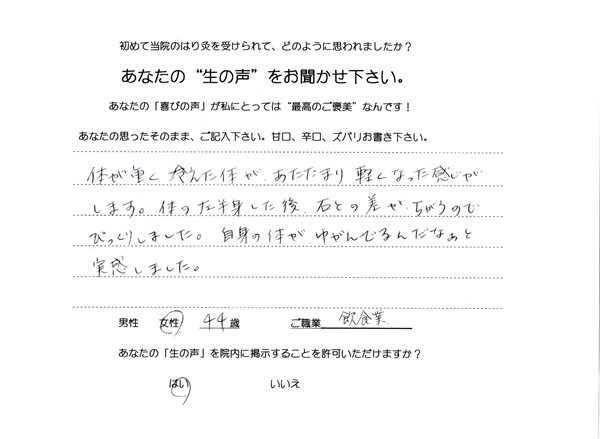 初めて当院のはり灸を受けられて、どのように思われましたか？
あなたの“生の声”をお聞かせ下さい。
あなたの「喜びの声」が私にとっては“最高のご褒美”なんです！
あなたの思ったそのまま、ご記入下さい。甘口、辛口、ズバリお書き下さい。
体が重く冷えた体が、あたたまり軽くなった感じが
します。体の左半身した後、右との差が、ちがうので
びっくりしました。自身の体が、ゆがんでるんだなぁと
実感しました。
男性 女性 44歳 ご職業 飲食業
あなたの「生の声」を院内に掲示することを許可いただけますか？
はい いいえ